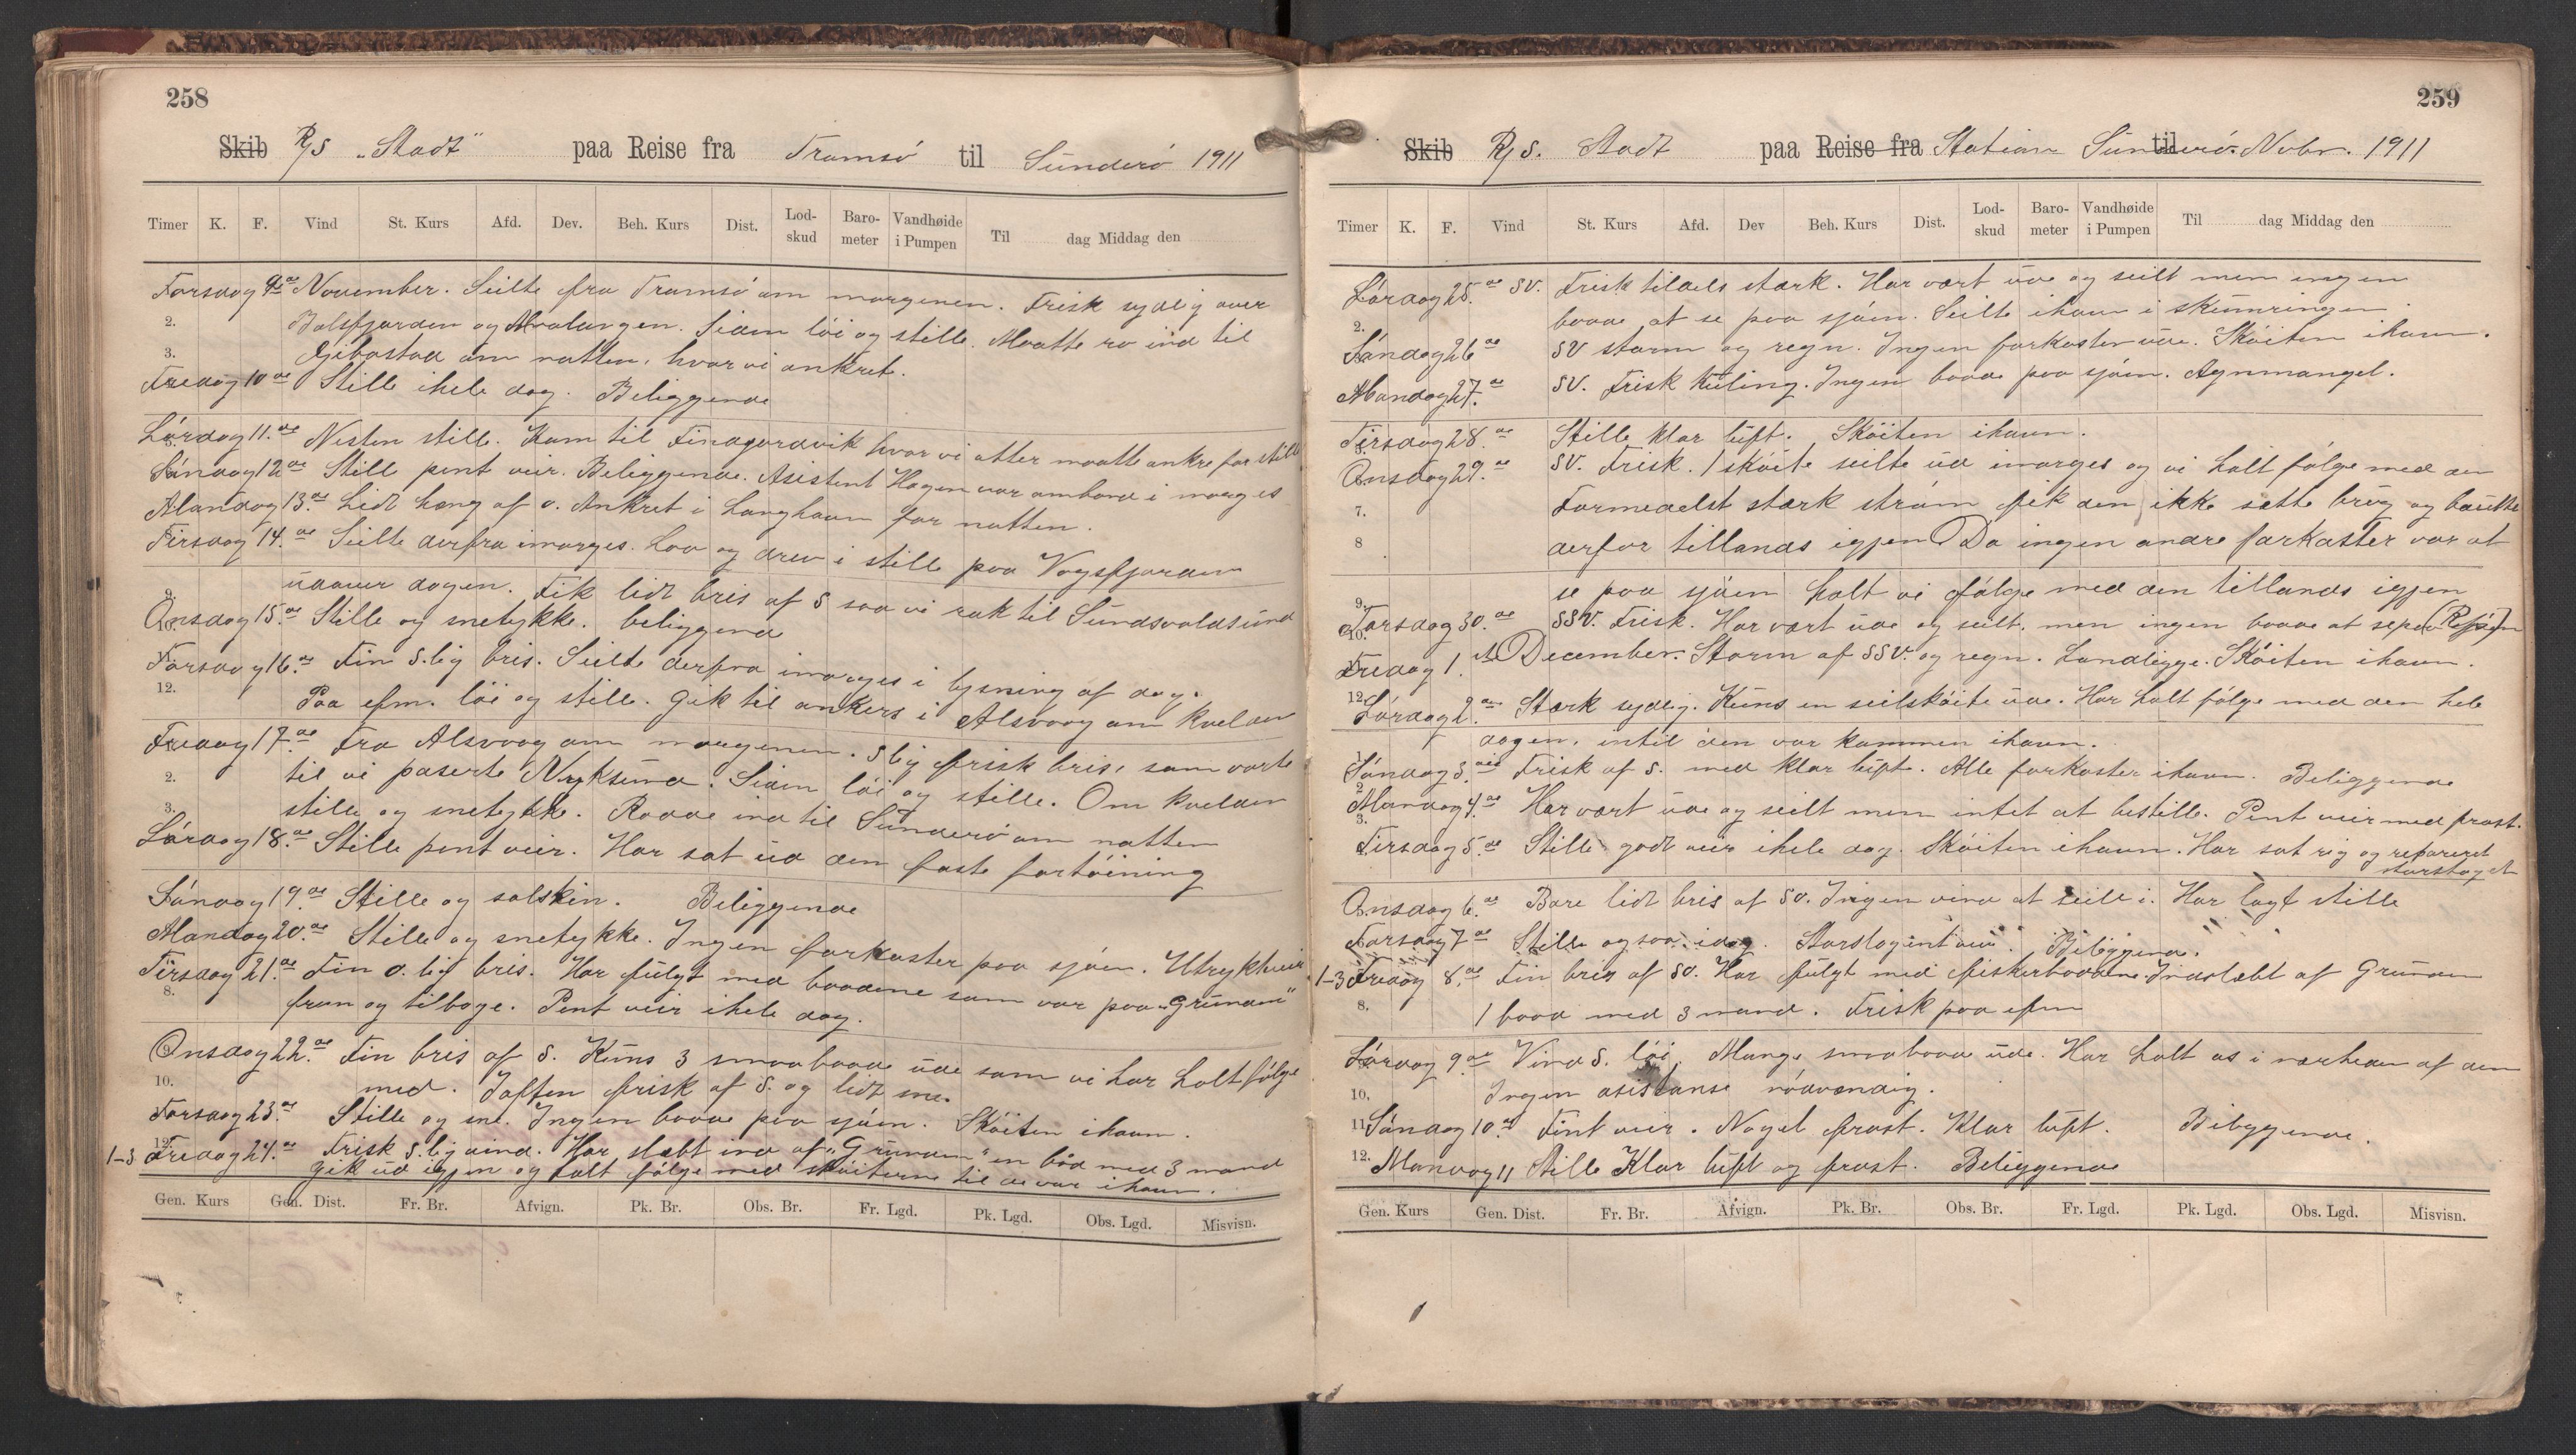 258
Skib R/S "Stadt" paa Reise fra Tromsø til Sunderö 1911
Timer K. F. Vind St. Kurs Afd. Dev. Beh. Kurs Dist. Lod-skud Baro-meter Vandhøide i Pumpen Til dag Middag den
Torsdag 9de November. Seilte fra Tromsö om morgenen. Frisk sydlig over
2. Balsfjorden og Malangen. Siden löi og stille. Maatte ro ind til
3. Gibostad om natten, hvor vi ankret.
Fredag 10de Stille ihele dag. Beliggende
Lördag 11.de Nesten stille. Kom til Finagardvik hvor vi atter maatte ankre for stille
Söndag 12de Still pent veir. Beliggende. Asistent Hagen var ombord i morges
Mandag 13.de Lidt hæng af o. Ankret i Langhavn for natten.
Tirsdag 14.de Seilte derfra imorges. Laa og drev i still paa Vogsfjorden
9. udover dagen. Fik lidt bris af S saa vi rak til Sundsvoldsund
Onsdag 15.de Stille og snetykke. beliggend
Torsdag 16.de Fin S.lig bris. Seilte derfra imorges i lysning af dag.
12. Paa efm. löi og stille. Gik til ankers i Alsvaag om kvelden
Fredag 17.de Fra Alsvaag om morgenen. Slig frisk bris, som varte
2. til vi paserte Nyksund. Siden löi og stille. Om kvelden
3. stille og snetykke. Rodde ind til Sunderö om natten
Lördag 18.de Stille pent veir. Har sat ud den faste fortöining
Söndag 19.de Stille og solskin. Beliggende
Mandag 20.de Stille og snetykke. Ingen farkoster paa sjöen. Utrykt veir
Tirsdag 21.de Fin o. lig bris. Har fulgt med baadene som var paa "Grunden"
8. fram og tilbage. Pent veir ihele dag.
Onsdag 22.de Fin bris af S. Kuns 3 smaabaade ude som vi har holt fölge
10. med. Iaften frisk af S. og lidt sne.
Torsdag 23.de Stille og sne. Ingen baade paa sjöen. Sköiten ihavn.
12. 1-3 Fredag 24.de Frisk S.lig vind. Har slæbt ind af "Grunden" en båd med 3 mand
gik ud igjen og holt fölge med sköiterne til de var ihavn.
Gen. Kurs Gen. Dist. Fr. Br. Afvign. Pk. Br. Obs. Br. Fr. Lgd. Pk. Lgd. Obs. Lgd. Misvisn.
259
Skib R/S. Stadt paa Reise fra Station Sunderö til Novbr. 1911
Timer K. F. Vind St. Kurs Afd. Dev Beh. Kurs Dist. Lod-skud Baro-meter Vandhøide i Pumpen Til dag Middag den
Lördag 25.de SV. Frisk tildels stærk. Har vært ude og seilt men ingen
2. baade at se paa sjöen. Seilte ihavn i skumringen
Söndag 26de SV storm og regn. Ingen farkoster ude. Sköiten ihavn.
Mandag 27.de SV. Frisk kuling. Ingen baade paa sjöen. Agnmangel.
Tirsdag 28.de Stille klar luft. Sköiten ihavn.
Onsdag 29.de SV. Frisk. 1 sköite seilte ud imorges og vi holt fölge med den
7. Formedelst stærk ström fik den ikke sætte brug og bautte
8 derfor tillands igjen Da ingen andre farkoster var at
9. se paa sjöen holt vi fölge med den tillands igjen
10. Torsdag 30.de SSV. Frisk. Har vært ude og seilt, men ingen baade at se paa sjöen
Fredag 1.ste December. Storm af SSV. og regn. Landligge. Sköiten ihavn.
12 Lördag 2.den Stærk sydlig. Kuns en seilsköite ude. Har holt fölge med den hele
dagen, intil den var kommen ihavn.
Söndag 3.die Frisk af S. med klar luft. Alle farkoster ihavn. Beliggende
2 Mandag 4.de Har vært ude og seilt men intet at bestille. Pent veir med frost.
3. Tirsdag 5.de Stille godt veir ihele dag. Sköiten ihavn. Har sat rig og repareret
storstaget
Onsdag 6.de Bare lidt bris af SO. Ingen vind at seile i. Har lagt stille
Torsdag 7de Stille ogsaa idag. Beliggend.
1-3 Fredag 8.de Fin bris af SO. Har fulgt med fiskerbaadene. Indslæbt af Grunden
8. 1 baad med 3 mand. Frisk paa efm
Lördag 9.de Vind S. löi. Mange smaabaade ude. Har holt os i nærheden af dem
10. Ingen asistanse nödvendig.
11 Söndag 10.de Fint veir. Noget frost. Klar luft. Beliggende.
12. Mandag 11 Stille Klar luft og frost. Beliggende
Gen. Kurs Gen. Dist. Fr. Br. Afvign. Pk. Br. Obs. Br. Fr. Lgd. Pk. Lgd. Obs. Lgd. Misvisn.